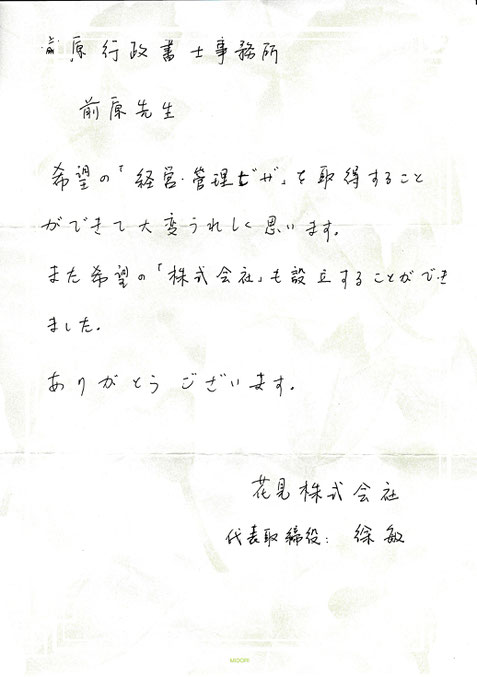 前原行政書士事務所
前原先生
希望の「経営・管理ビザ」を取得すること
ができて大変うれしく思います。
また希望の「株式会社」も設立することができ
ました。
ありがとうございます。
花見株式会社
代表取締役：徐敏
MIDORI